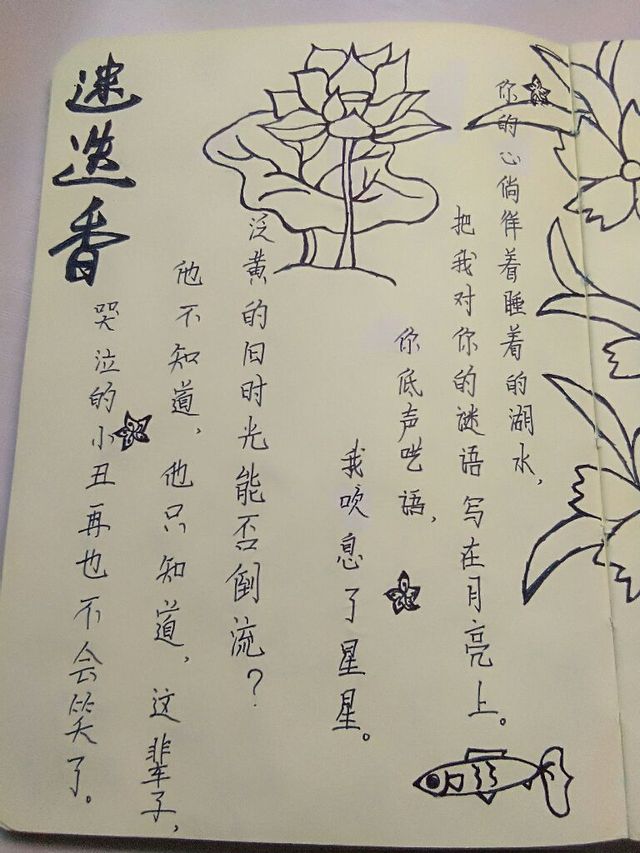 迷迭香
你的心倘徉着睡着的湖水，
把我对你的谜语写在月亮上。
你低声呓语，
我吹息了星星。
泛黄的旧时光能否倒流？
他不知道，他只知道，这辈子，
哭泣的小丑再也不会笑了。